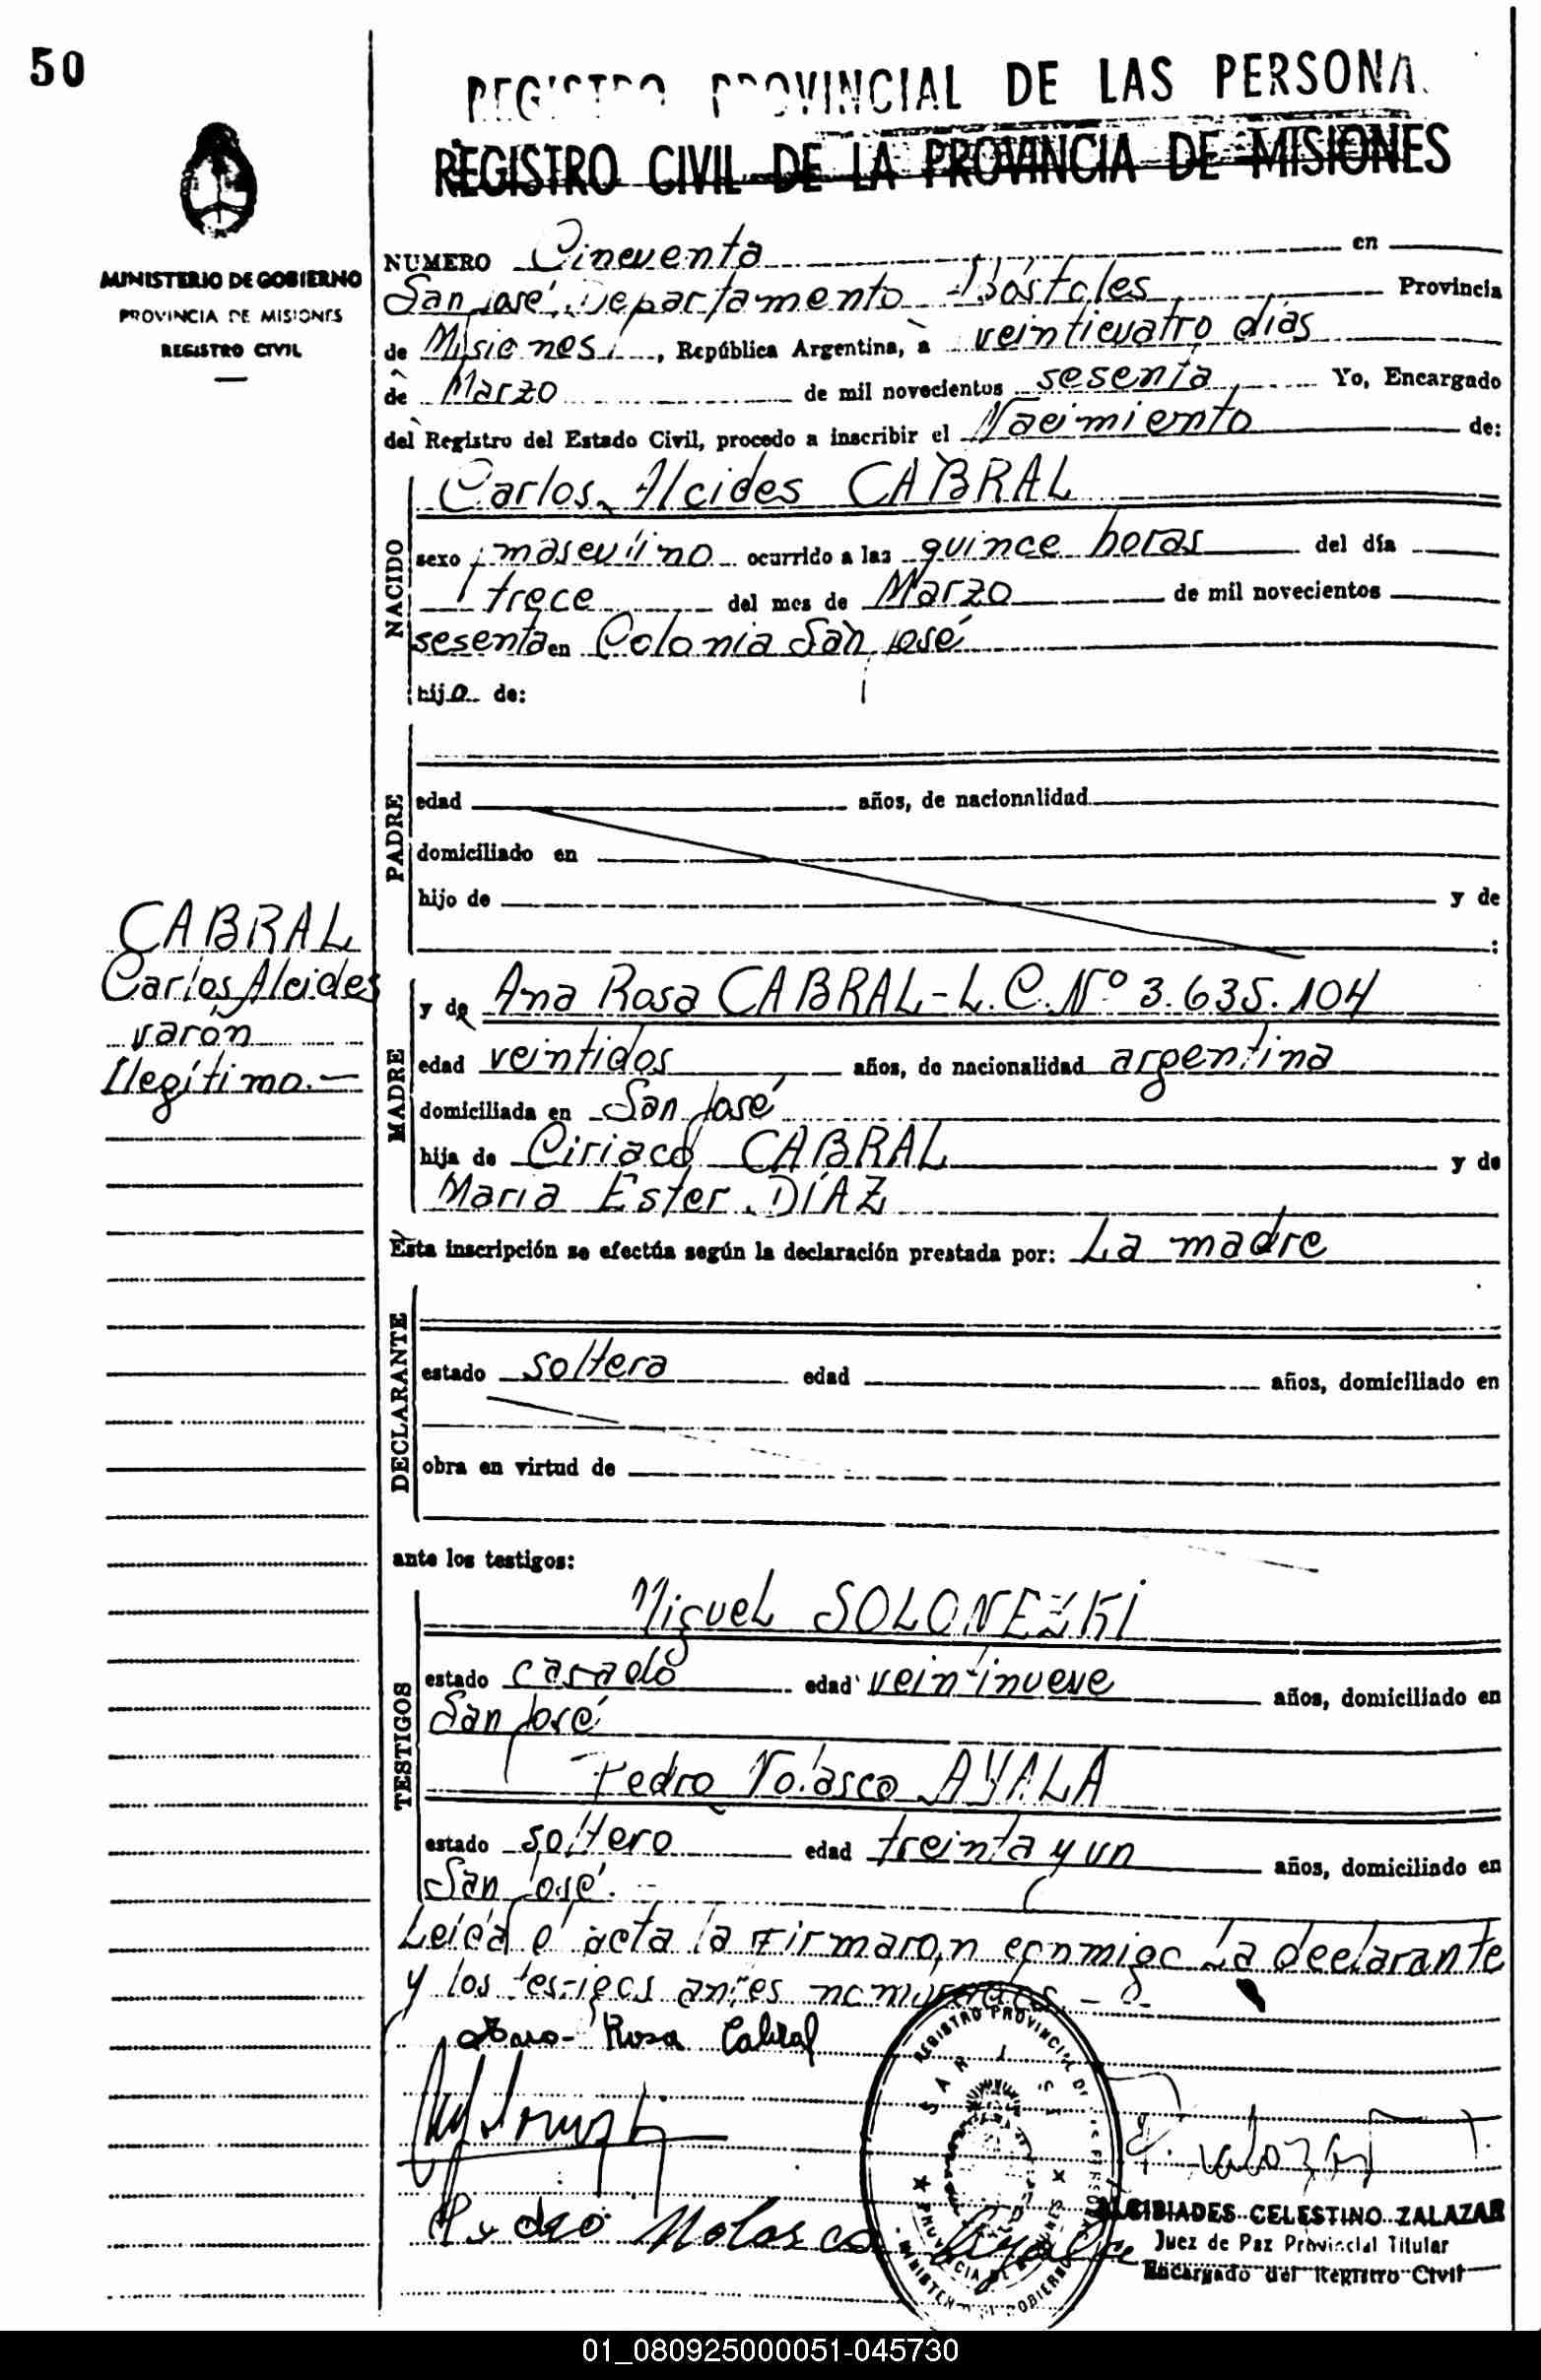 50
REGISTRO PROVINCIAL DE LAS PERSONA
REGISTRO CIVIL DE LA PROVINCIA DE MISIONES
MINISTERIO DE GOBIERNO
PROVINCIA DE MISIONES
REGISTRO CIVIL
NUMERO Cincuenta en
San José, Departamento Apóstoles Provincia
de Misiones, República Argentina, a veinticuatro días
de Marzo de mil novecientos sesenta, Yo, Encargado
del Registro del Estado Civil, procedo a inscribir el Nacimiento de:
NACIDO
Carlos Alcides CABRAL
sexo masculino ocurrido a las quince horas del día
trece del mes de Marzo de mil novecientos
sesenta en Colonia San José
hijo de:
PADRE
edad años, de nacionalidad
domiciliado en
hijo de y de
:
CABRAL
Carlos Alcides
varón
Ilegítimo.-
MADRE
y de Ana Rosa CABRAL - L.C. Nº 3.635.104
edad veintidos años, de nacionalidad argentina
domiciliada en San José
hija de Ciriaco CABRAL y de
Maria Ester DÍAZ
Esta inscripción se efectúa según la declaración prestada por: La madre
DECLARANTE
estado soltera edad años, domiciliado en
obra en virtud de
ante los testigos:
TESTIGOS
Miguel SOLONEZKI
estado casado edad veintinueve años, domiciliado en
San José
Pedro Nolasco AYALA
estado soltero edad treinta y un años, domiciliado en
San José.
Leída el acta la firmaron conmigo la declarante
y los testigos antes nombrados
Rosa Cabral
Pedro Nolasco Ayala
REGISTRO PROVINCIAL DE LAS PERSONAS
SAN JOSE
PROVINCIA DE MISIONES
MINISTERIO DE GOBIERNO
ALCIBIADES CELESTINO ZALAZAR
Juez de Paz Provincial Titular
Encargado del Registro Civil
01_080925000051-045730